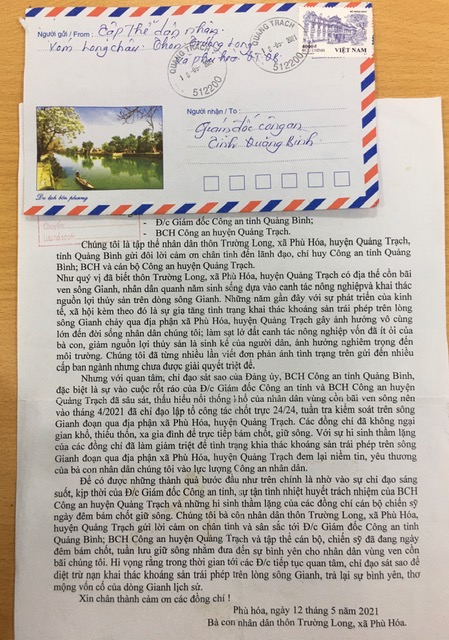 Người gửi / From : Tập Thể dân nhân
Xóm Long châu. Thôn Trường Long.
Xã phù hóa QT. QB.
QUẢNG TRẠCH
512200
QUẢNG TRẠCH
512200
4000đ
VIỆT NAM
Người nhận / To :
Giám đốc công an
Tỉnh Quảng Bình
Du lịch bốn phương
Chuyển
- Đ/c Giám đốc Công an tỉnh Quảng Bình;
- BCH Công an huyện Quảng Trạch.
Chúng tôi là tập thể nhân dân thôn Trường Long, xã Phù Hóa, huyện Quảng Trạch,
tỉnh Quảng Bình gửi đôi lời cảm ơn chân tình đến lãnh đạo, chỉ huy Công an tỉnh Quảng
Bình; BCH và cán bộ Công an huyện Quảng Trạch.
Như quý vị đã biết thôn Trường Long, xã Phù Hóa, huyện Quảng Trạch có địa thế cồn bãi
ven sông Gianh, nhân dân quanh năm sinh sống dựa vào canh tác nông nghiệpvà khai thác
nguồn lợi thủy sản trên dòng sông Gianh. Những năm gần đây với sự phát triển của kinh
tế, xã hội kèm theo đó là sự gia tăng tình trạng khai thác khoáng sản trái phép trên lòng
sông Gianh chảy qua địa phận xã Phù Hóa, huyện Quảng Trạch gây ảnh hưởng vô cùng
lớn đến đời sống nhân dân chúng tôi; làm sạt lở đất canh tác nông nghiệp vốn đã ít ỏi của
bà con, giảm nguồn lợi thủy sản là sinh kế của người dân, ảnh hưởng nghiêm trọng đến
môi trường. Chúng tôi đã từng nhiều lần viết đơn phản ánh tình trạng trên gửi đến nhiều
cấp ban ngành nhưng chưa được giải quyết triệt để.
Nhưng với quan tâm, chỉ đạo sát sao của Đảng ủy, BCH Công an tỉnh Quảng Bình,
đặc biệt là sự vào cuộc rốt ráo của Đ/c Giám đốc Công an tỉnh và BCH Công an huyện
Quảng Trạch đã sâu sát, thấu hiểu nổi thống khổ của nhân dân vùng cồn bãi ven sông nên
vào tháng 4/2021 đã chỉ đạo lập tổ công tác chốt trực 24/24, tuần tra kiểm soát trên sông
Gianh đoạn qua địa phận xã Phù Hóa, huyện Quảng Trạch. Các đồng chí đã không ngại
gian khổ, thiếu thốn, xa gia đình để trực tiếp bám chốt, giữ sông. Với sự hi sinh thầm lặng
của các đồng chí đã làm giảm triệt để tình trạng khai thác khoáng sản trái phép trên sông
Gianh đoạn qua địa phận xã Phù Hóa, huyện Quảng Trạch đem lại niềm tin, yêu thương
của bà con nhân dân chúng tôi vào lực lượng Công an nhân dân.
Để có được những thành quả bước đầu như trên chính là nhờ vào sự chỉ đạo sáng
suốt, kịp thời của Đ/c Giám đốc Công an tỉnh, sự tận tình nhiệt huyết trách nhiệm của BCH
Công an huyện Quảng Trạch và những hi sinh thầm lặng của các đồng chí cán bộ chiến sỹ
ngày đêm bám chốt giữ sông. Chúng tôi bà còn nhân dân thôn Trường Long, xã Phù Hóa,
huyện Quảng Trạch gửi lời cảm ơn chân tình và sân sắc tới Đ/c Giám đốc Công an tỉnh
Quảng Bình, BCH Công an huyện Quảng Trạch và tập thể cán bộ, chiến sỹ đã đang ngày
đêm bám chốt, tuần lưu giữ sông nhằm đưa đến sự bình yên cho nhân dân vùng ven cồn
bãi chúng tôi. Hi vọng rằng trong thời gian tới các Đ/c tiếp tục quan tâm, chỉ đạo sát sao để
diệt trừ nạn khai thác khoáng sản trái phép trên lòng sông Gianh, trả lại sự bình yên, thơ
mộng vốn cố của dòng Gianh lịch sử.
Xin chân thành cảm ơn các đồng chí !
Phù hóa, ngày 12 tháng 5 năm 2021
Bà con nhân dân thôn Trường Long, xã Phù Hóa.